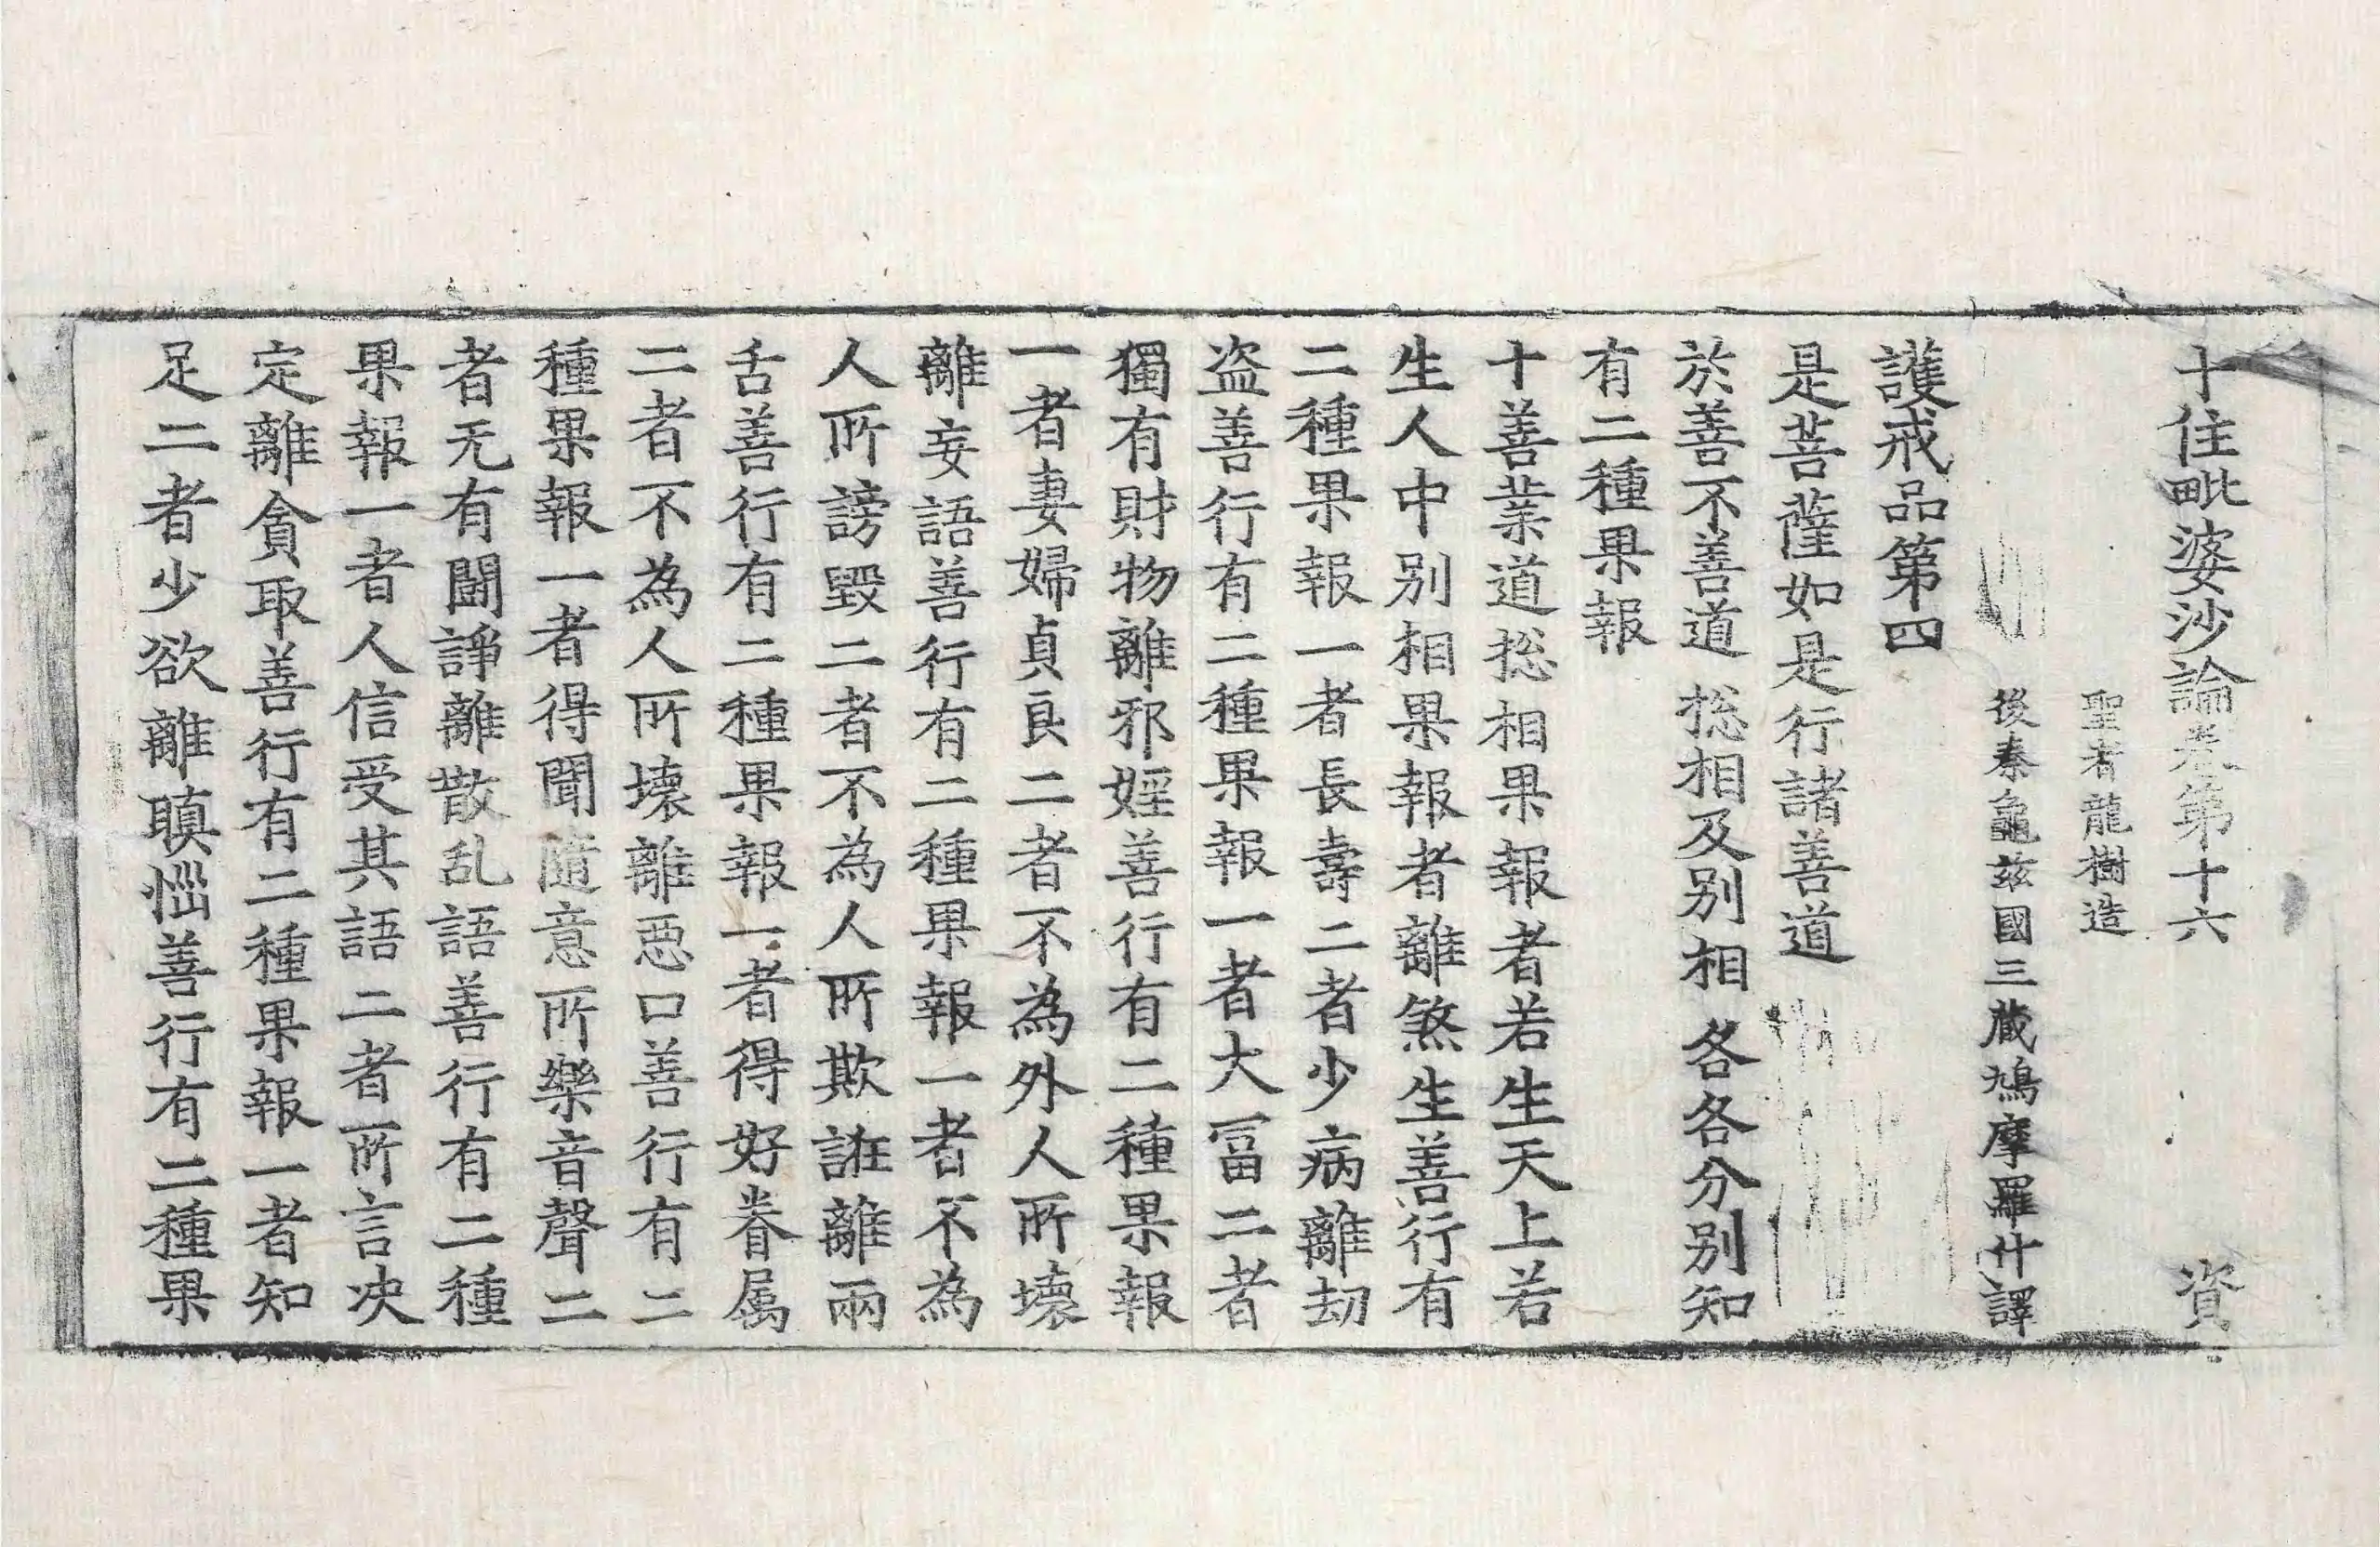 十住毗婆沙論卷第十六 資
聖者龍樹造
後秦龜茲國三藏鳩摩羅什譯
護戒品第四
是菩薩如是行諸善道
於善不善道 捴相及别相 各各分别知
有二種果報
十善業道捴相果報者若生天上若
生人中别相果報者離煞生善行有
二種果報一者長壽二者少病離劫
盗善行有二種果報一者大冨二者
獨有財物離邪婬善行有二種果報
一者妻婦貞良二者不為外人所壞
離妄語善行有二種果報一者不為
人所謗毀二者不為人所欺誑離兩
舌善行有二種果報一者得好眷属
二者不為人所壞離惡口善行有二
種果報一者得聞隨意所樂音聲二
者无有鬪諍離散乱語善行有二種
果報一者人信受其語二者所言决
定離貪取善行有二種果報一者知
足二者少欲離瞋惱善行有二種果